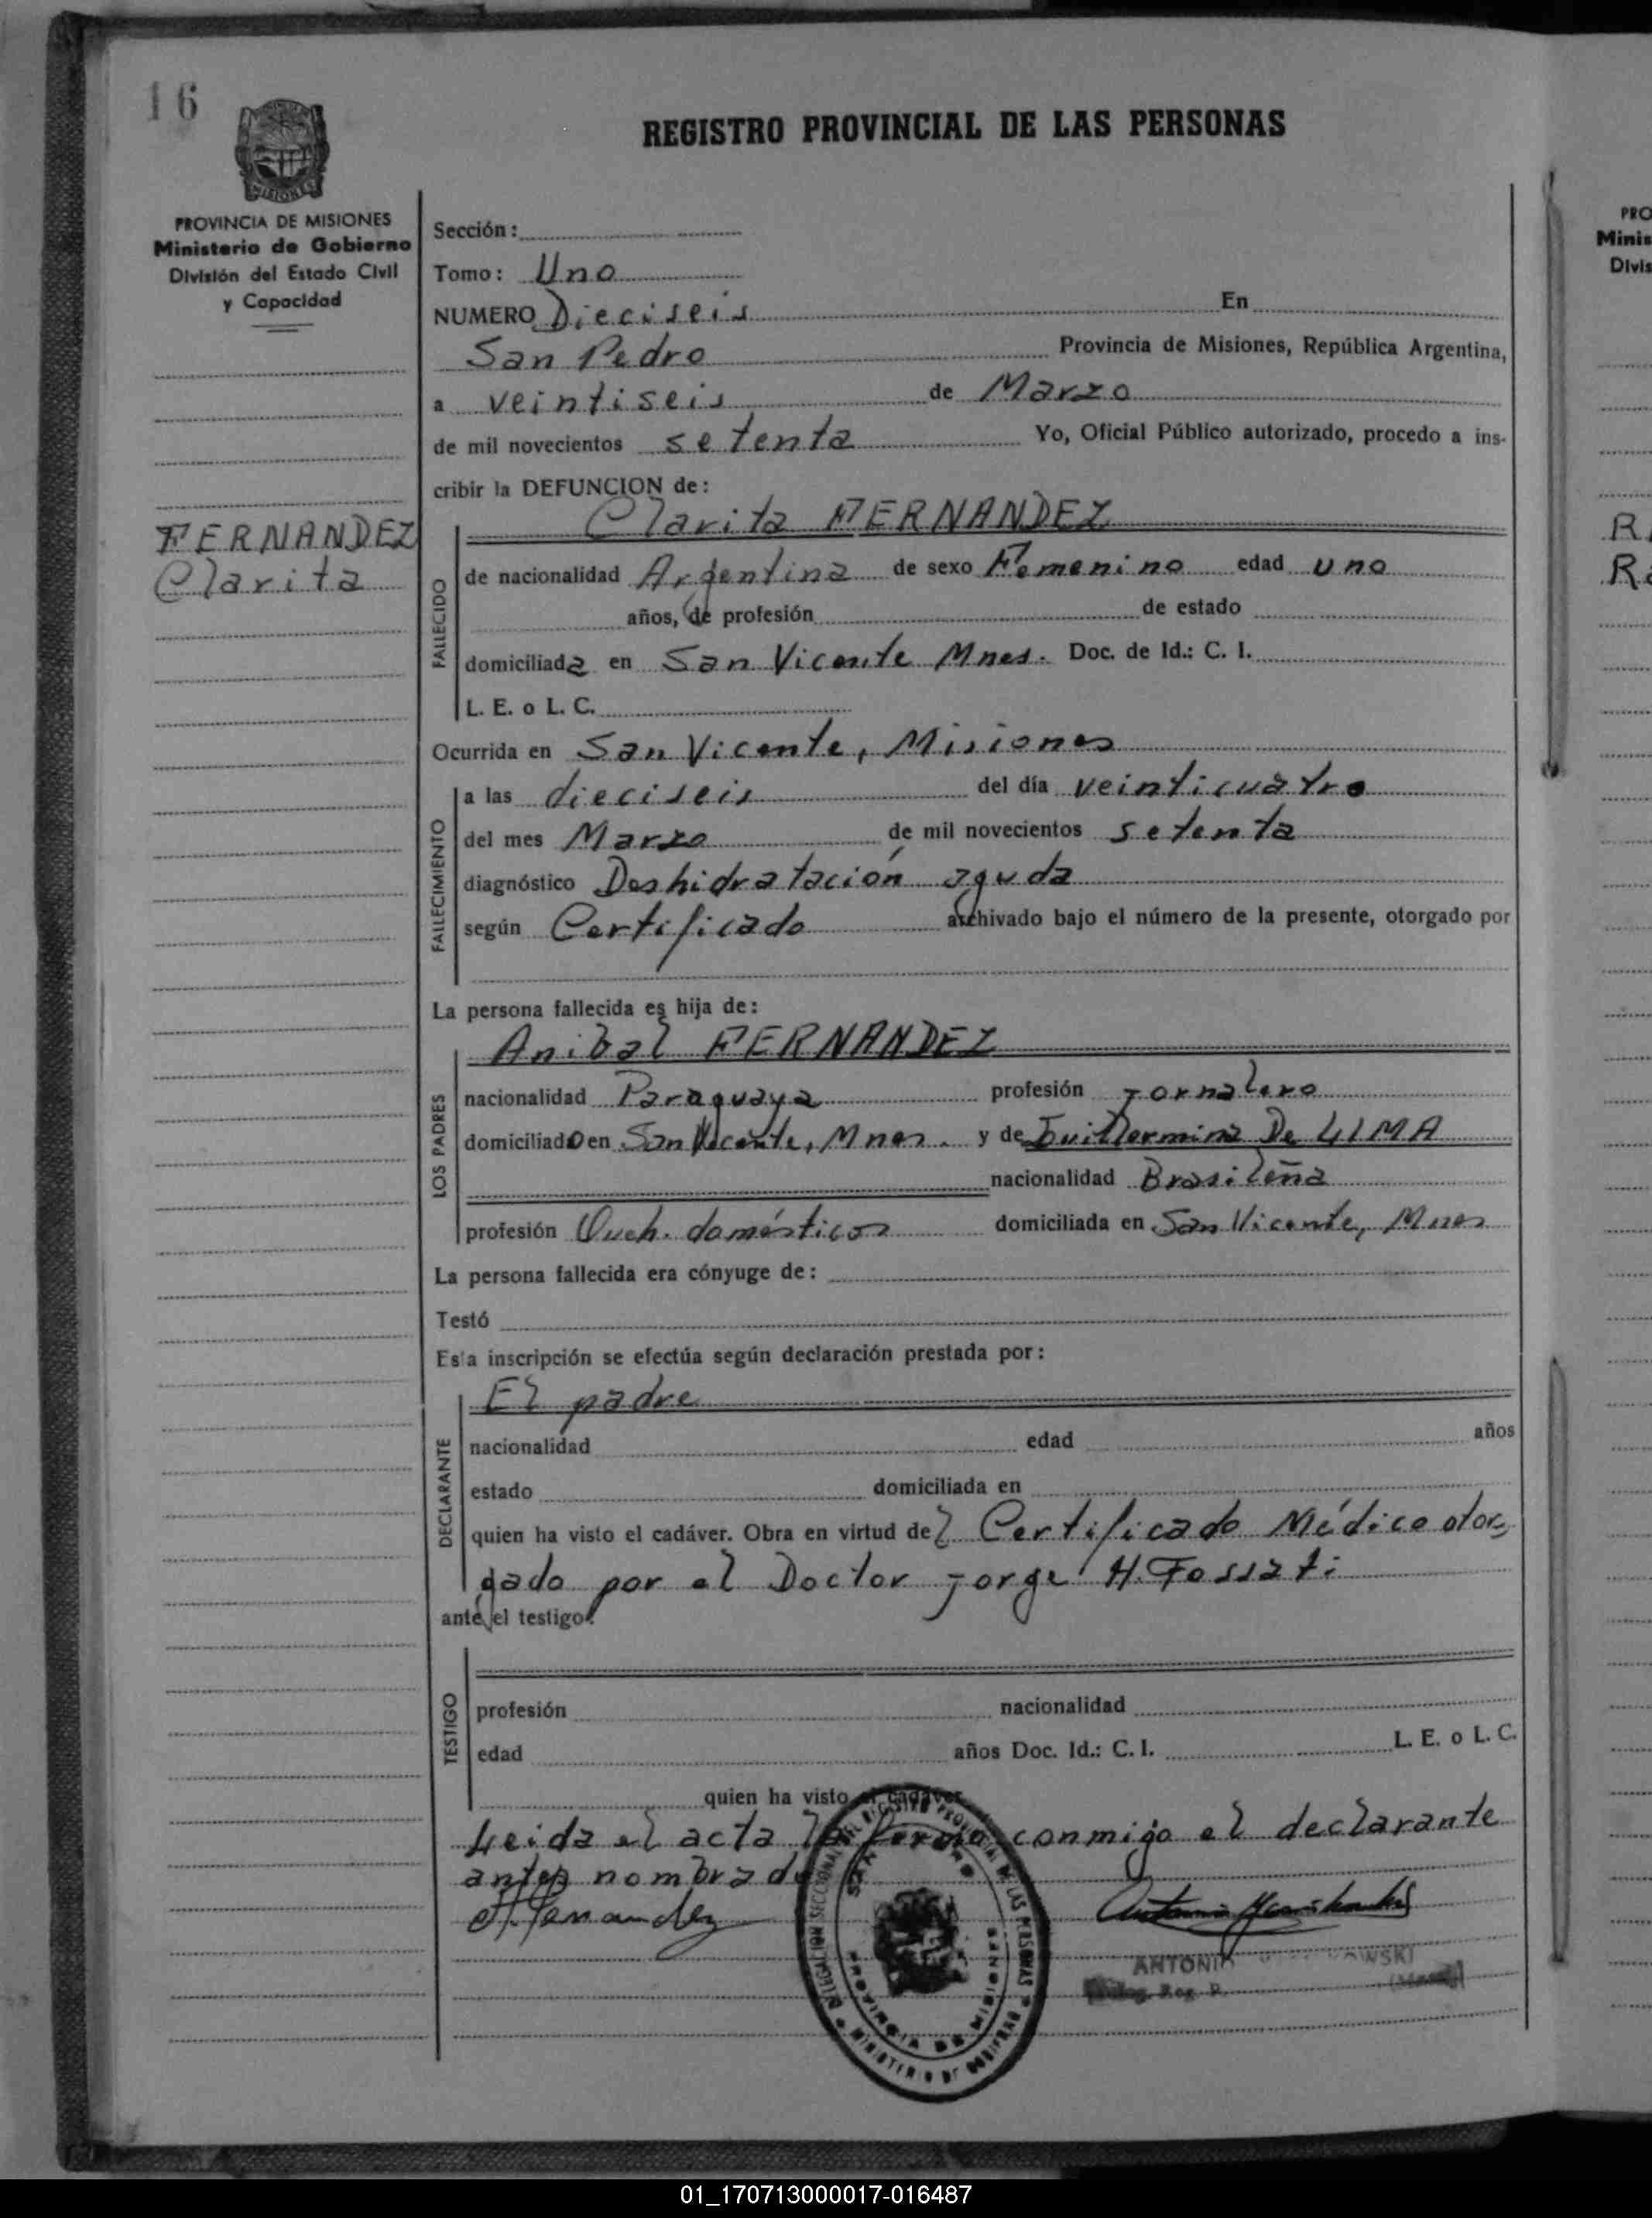 16
REGISTRO PROVINCIAL DE LAS PERSONAS
PROVINCIA DE MISIONES
Ministerio de Gobierno
División del Estado Civil
y Capacidad
FERNANDEZ
Clarita
Sección:
Tomo: Uno
NUMERO Dieciseis En
San Pedro Provincia de Misiones, República Argentina,
a veintiseis de Marzo
de mil novecientos setenta Yo, Oficial Público autorizado, procedo a ins-
cribir la DEFUNCION de:
Clarita FERNANDEZ
FALLECIDO
de nacionalidad Argentina de sexo Femenino edad uno
años, de profesión de estado
domiciliada en San Vicente Mnes. Doc. de Id.: C. I.
L. E. o L. C.
Ocurrida en San Vicente, Misiones
FALLECIMIENTO
a las dieciseis del día veinticuatro
del mes Marzo de mil novecientos setenta
diagnóstico Deshidratación aguda
según Certificado archivado bajo el número de la presente, otorgado por
La persona fallecida es hija de:
Anibal FERNANDEZ
LOS PADRES
nacionalidad Paraguaya profesión Jornalero
domiciliado en San Vicente, Mnes. y de Guillermina De LIMA
nacionalidad Brasileña
profesión Queh. domésticos domiciliada en San Vicente, Mnes
La persona fallecida era cónyuge de:
Testó
Esta inscripción se efectúa según declaración prestada por:
El padre
DECLARANTE
nacionalidad edad años
estado domiciliada en
quien ha visto el cadáver. Obra en virtud del Certificado Médico otor-
gado por el Doctor Jorge H. Fossati
ante el testigo:
TESTIGO
profesión nacionalidad
edad años Doc. Id.: C. I. L. E. o L. C.
quien ha visto el cadáver
Leida el acta la firma conmigo el declarante
antes nombrado
A. Fernandez
ANTONIO
DELEGACION SECCIONAL DEL REGISTRO PROVINCIAL DE LAS PERSONAS
SAN PEDRO
PROVINCIA DE MISIONES
MINISTERIO DE GOBIERNO
PRO
Minis
Divis
R
01_170713000017-016487